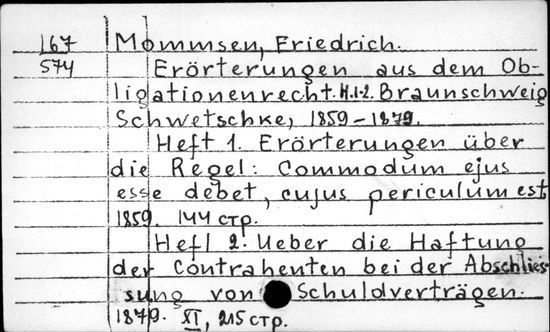 167 Mommsen, Friedrich.
574 Erörterungen aus dem Ob-
ligationenrecht. H.1-2. Braunschweig
Schwetschke, 1859-1879.
Heft 1. Erörterungen über
die Regel: Commodum ejus
esse debet, cujus periculum est
1859. 144 стр.
Hefl 2. Ueber die Haftung
der Contrahenten bei der Abschlies
sung von Schuldverträgen.
1879. XI, 215 стр.